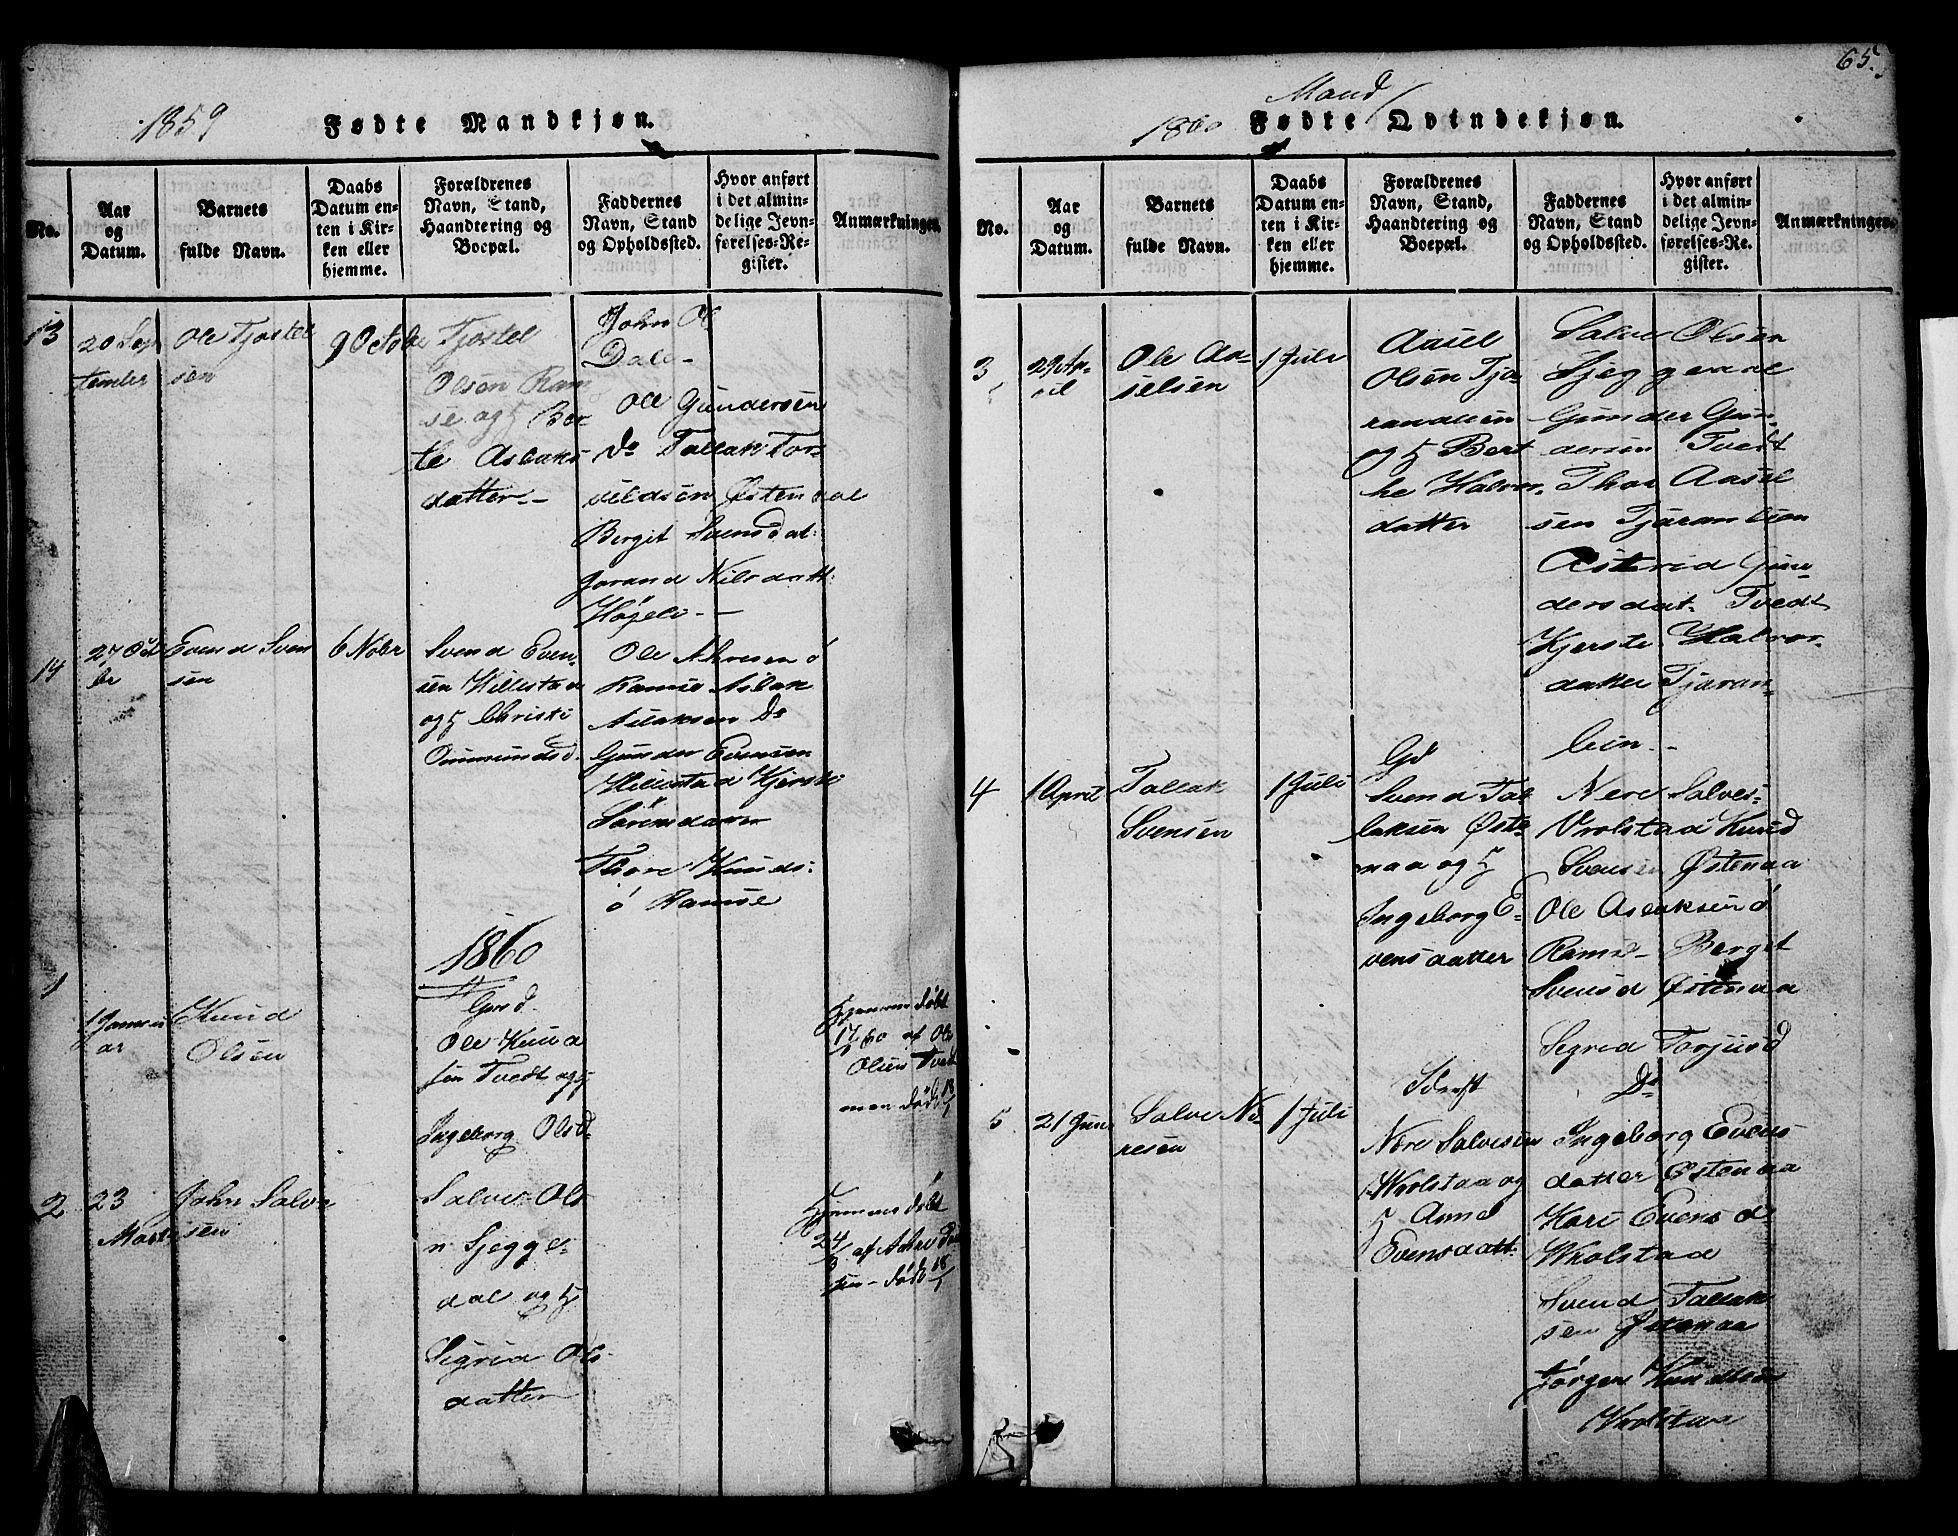 65.
1859
Fødte Mandkjøn.
No.
Aar
og
Datum.
Barnets
fulde Navn.
Daabs
Datum en-
ten i Kir-
ken eller
hjemme.
Forældrenes
Navn, Stand,
Haandtering og
Boepæl.
Faddernes
Navn, Stand
og Opholdssted.
Hvor anført
i det almin-
delige Jevn-
førelses-Re-
gister.
Anmærkninger.
13
20 Sep
tember
Ole Tjostel
sen
9 Octobe
Tjostel
Olsen Ram
se og h Ber
te Aslaks
datter -
John Ol
Dale -
Ole Gundersen
Do Tallak Tor-
vildsen Østenaae
Bergit Svensdat:
Jorand Nilsdatt:
Høgeli -
14
27 Oct
br
Evend Sven
sen
6 Nobr
Svend Even
sen Hillestad
og h Christi
Ommundsd.
Ole
Ramse Aslak
Aslaksen Do
Gunder Evensen
Hillestad Kjersti
Sørensdatter
Thore Knuds:
ó Ramse
1860
1
1 Janu
ar
Knud
Olsen
Grd.
Ole Knud
sen Tvedt og h
Ingeborg Olsd.
Hjemmedøbt
17/ 60 af Ole
Olsen Tvedt
men død 18/1
2
23
Marts
John Salve
sen
Salve Ols
n Sjegge-
dal og h
Sigrid Ols
datter
Hjemmedøbt
24/3 af
sen - død 18/
Mand/
1860 Fødte Qvindekjøn.
No.
Aar
og
Datum.
Barnets
fulde Navn.
Daabs
Datum en-
ten i Kir-
ken eller
hjemme.
Forældrenes
Navn, Stand,
Haandtering og
Boepæl.
Faddernes
Navn, Stand
og Opholdssted.
Hvor anført
i det almin-
delige Jevn-
førelses-Re-
gister.
Anmærkninger.
3
29 Ap-
ril
Ole Aa-
selsen
1 Juli
Aasel
Olsen Tja-
randlien
og h Bert
he Halvor-
datter
Salve Olsen
Sjeggedal
Gunder Gun-
dersen Tvedt
Thor Aasel
sen Tjaranlien
Asterid Gun-
dersdat. Tvedt
Kjersti Halvor-
datter Tjaran-
lien -
4
1 April
Tallak
Svensen
1 Juli
Gd
Svend Tal
laksen Øste
naa og h
Ingeborg E-
vensdatter
Nere Salves-
Vrolstad Knud
Svensen Østenaa
Ole Aslaksen ó
Ramse Bergit
Svensd Østenaa
Sigrid Torjusd
Do
5
21 Juni
Salve Ne-
resen
1 Juli
Nere Salvesen
Wrolstad og
h Anne
Evensdatt-
Ingeborg Evens
datter Østenaa
Kari Evensd-
Wrolstad
Svend Tallak
sen Østenaa
Jørgen Knudsen
Wrolstad